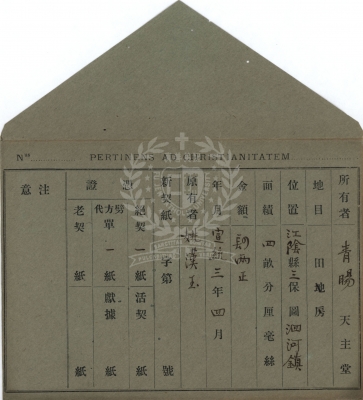 Nº
PERTINENS AD CHRISTIANITATEM
所有者 青暘 天主堂
地目 田地房
位置 江陰縣三保圖泗河鎮
面績 四畝分厘毫絲
金額 兩正
年月 宣統三年四月
原有者 姚漢玉
新契紙 字第 號
證 絕契一紙活契 紙
代方單一紙獻據 紙
老契 紙 紙
注意